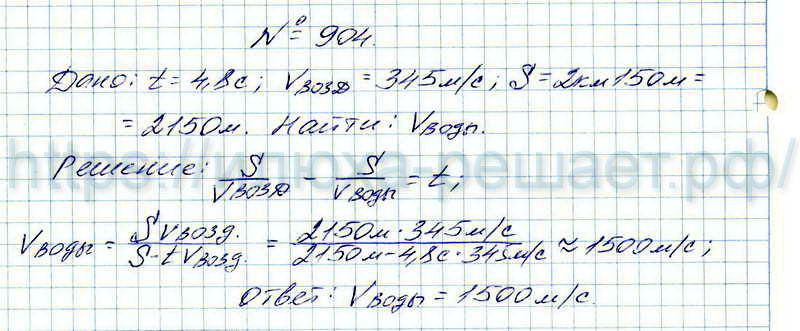 № 904.
Дано: t = 4,8с; Vвозд = 345м/с; S = 2км150м =
= 2150м. Найти: Vводы.
Решение: S/Vвозд − S/Vводы = t;
Vводы = S Vвозд. / S-t Vвозд. = 2150м · 345м/с / 2150м-4,8с · 345м/с ≈ 1500м/с;
Ответ: Vводы = 1500м/с.
https://илюха-решает.рф/